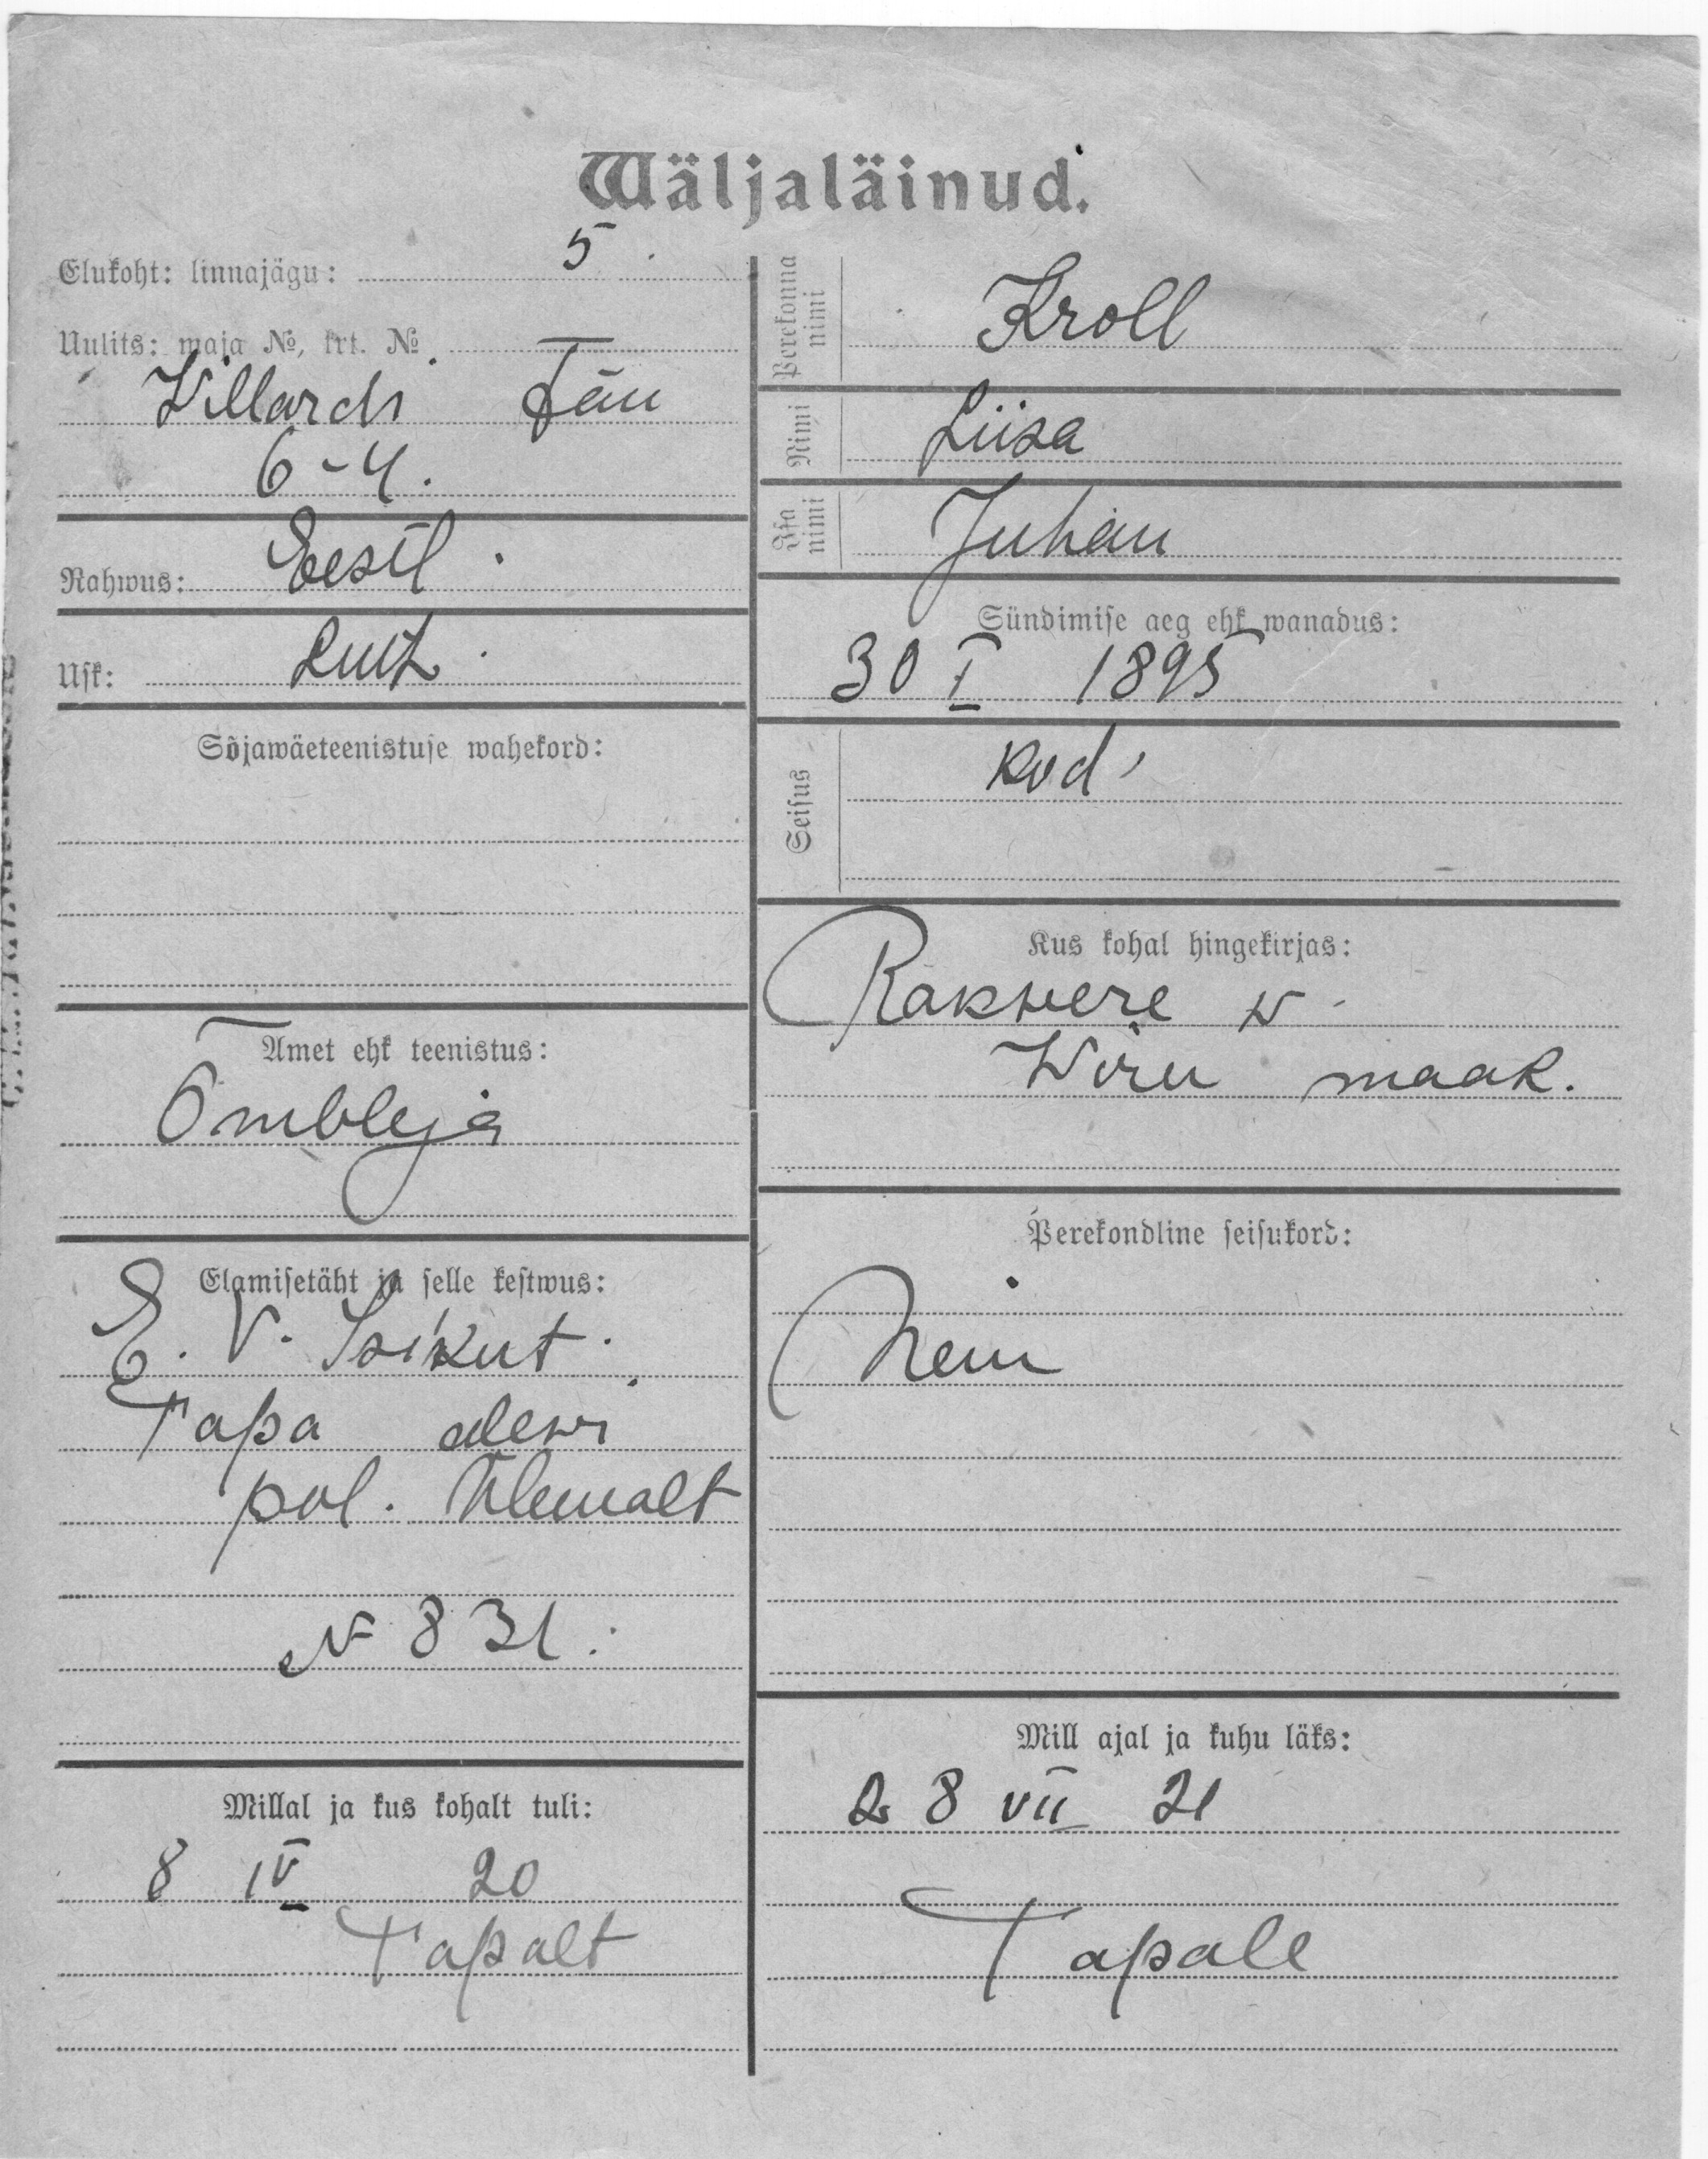 Wäljaläinud.
Elukoht: linnajägu: 5.
Uulits: maja №, krt. №
Willardi Tän
6-4.
Rahwus: Eesti.
Usk: Luth.
Sõjawäeteenistuse wahekord:
Amet ehk teenistus:
Õmbleja
Elamisetäht ja selle kestwus:
E. V. Isikut.
Tapa alewi
pol. Ülemalt
N 831.
Millal ja kus kohalt tuli:
8 IV 20
Tapalt
Perekonna nimi Kroll
Nimi Liisa
Isa nimi Juhan
Sündimise aeg ehk wanadus:
30 I 1895
Seisus kod.
Kus kohal hingekirjas:
Rakwere w.
Wiru maak.
Perekondline seisukord:
Neiu
Mill ajal ja kuhu läks:
28 VII 21
Tapale